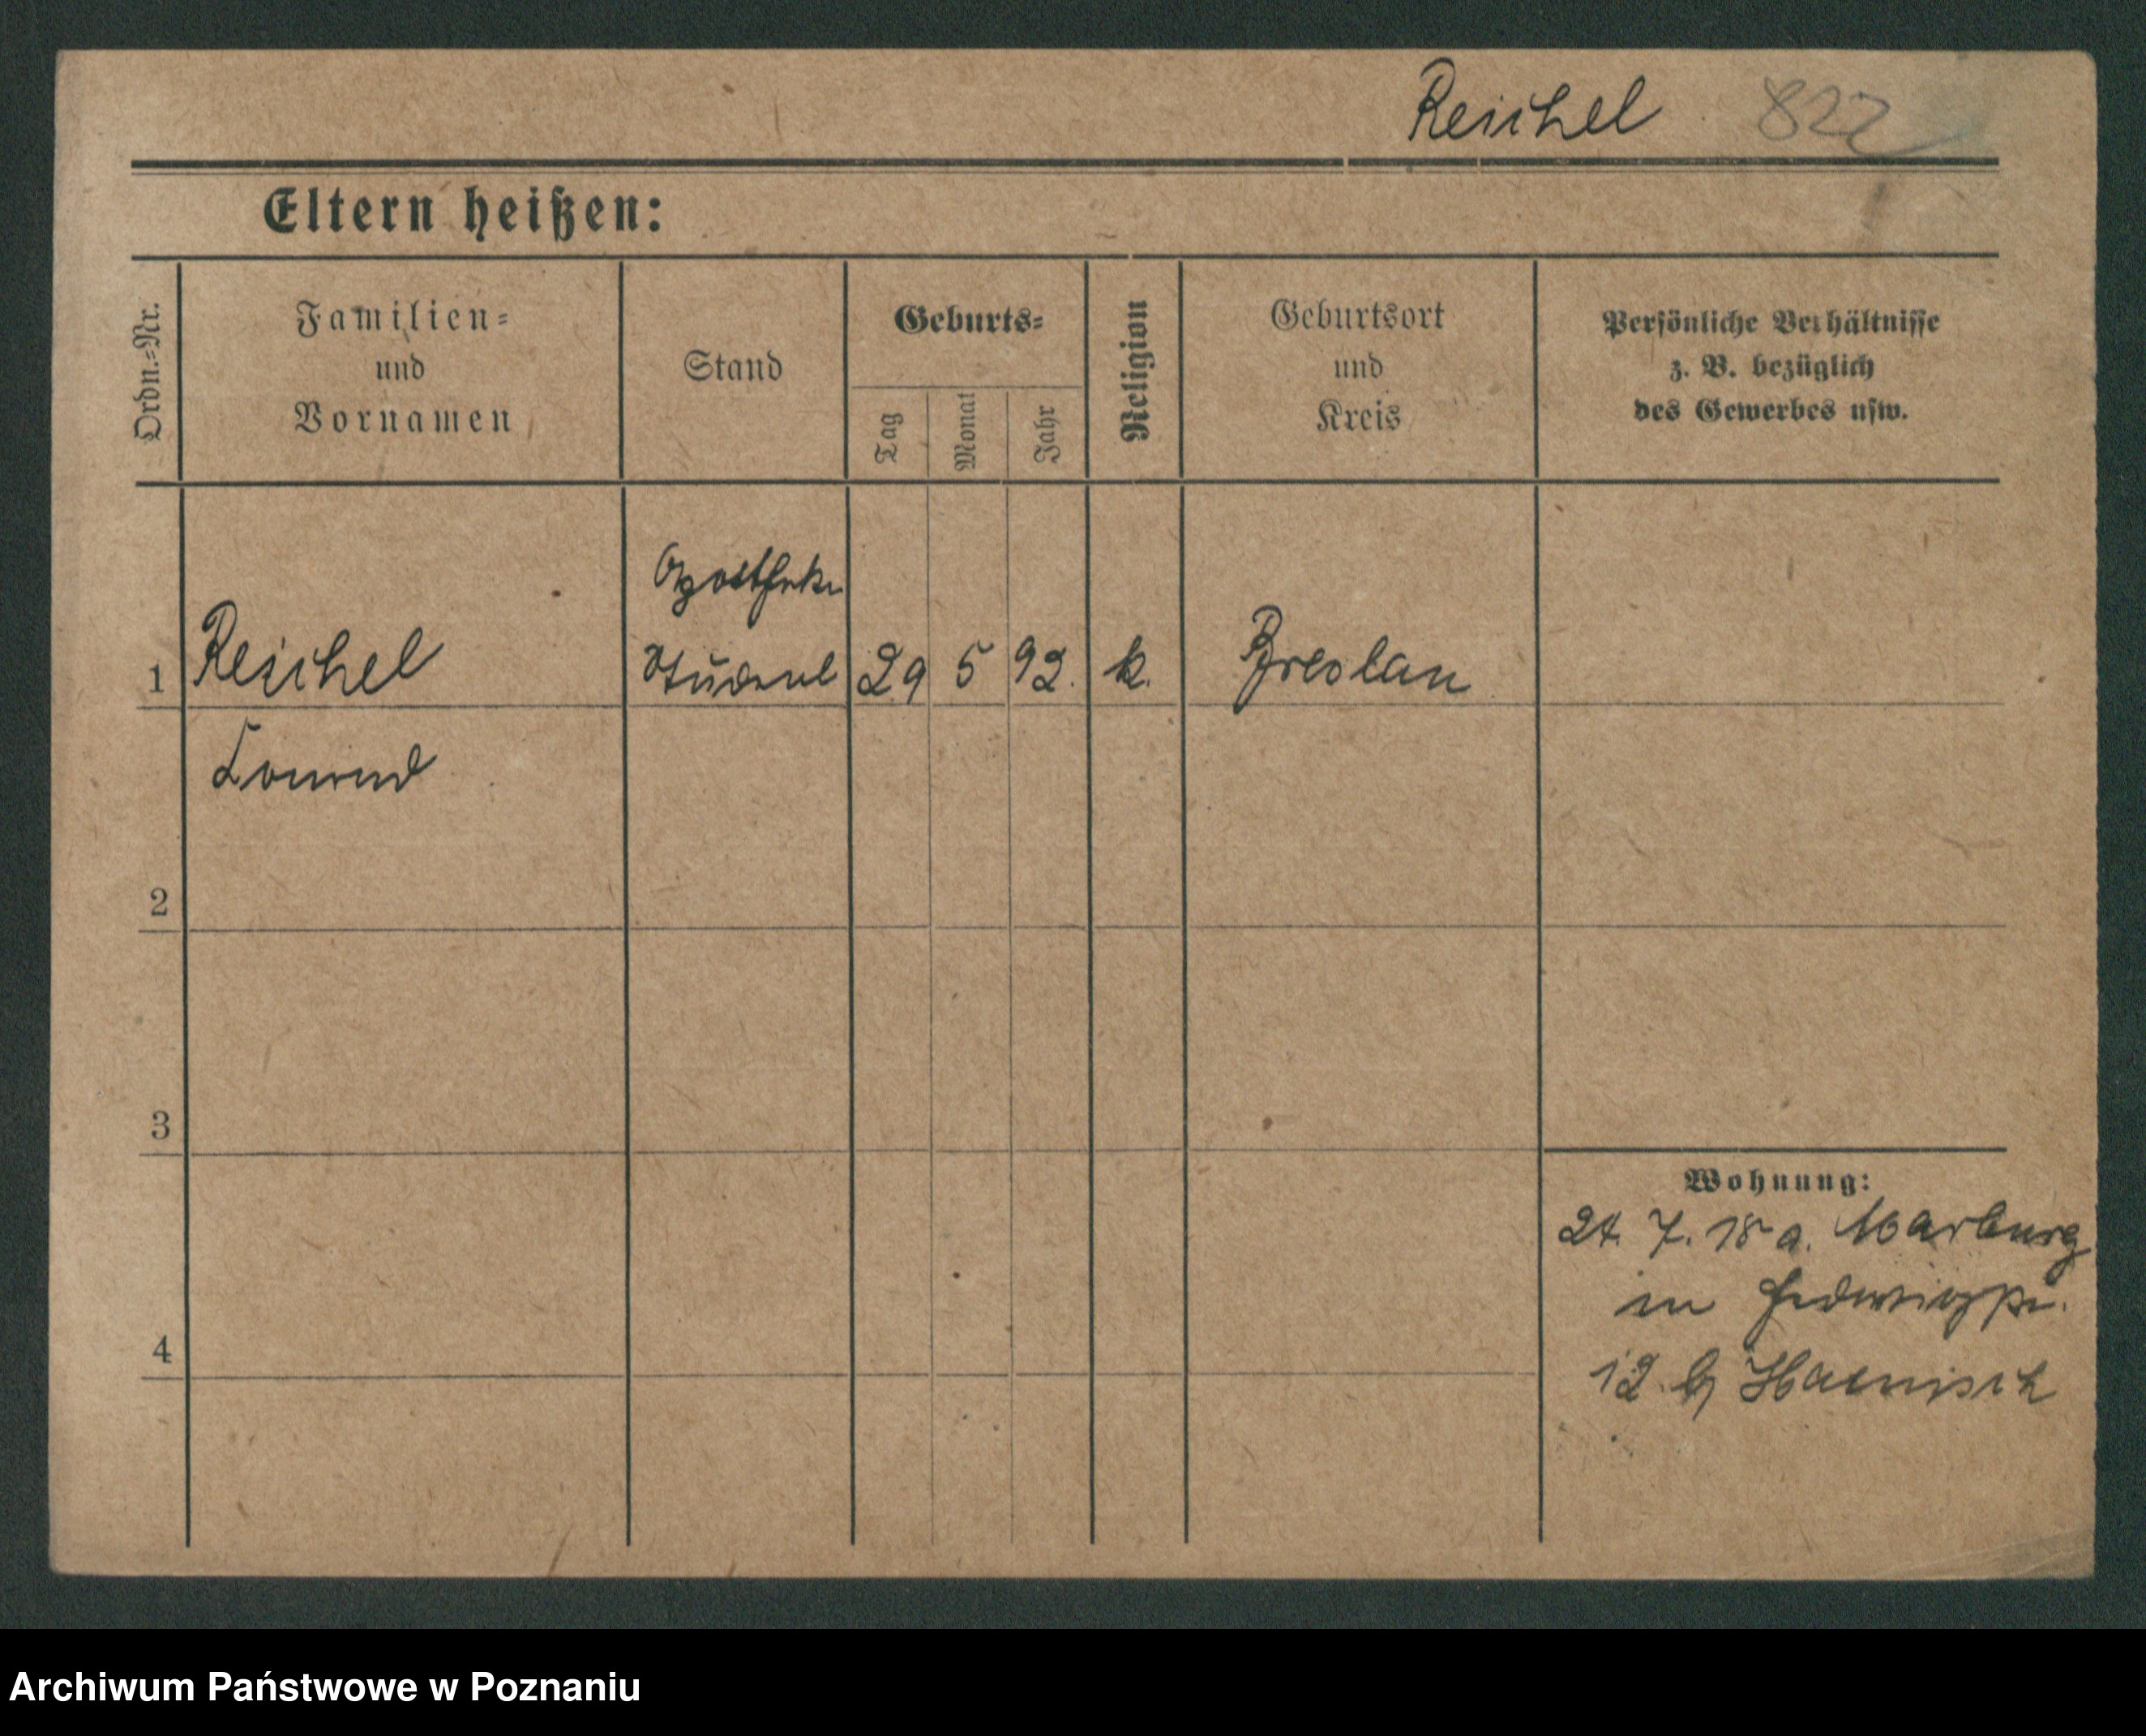 Reichel 822
Eltern heißen:
Ordn.-Nr.
Familien-
und
Vornamen
Stand
Geburts-
Tag
Monat
Jahr
Religion
Geburtsort
und
Kreis
Persönliche Verhältnisse
z. B. bezüglich
des Gewerbes usw.
1 Reichel
Student 29 5 92. k. Breslau
2
3
4
Wohnung:
24. 7. 18 a. Marburg
in
12. b/ Haenisch
Archiwum Państwowe w Poznaniu